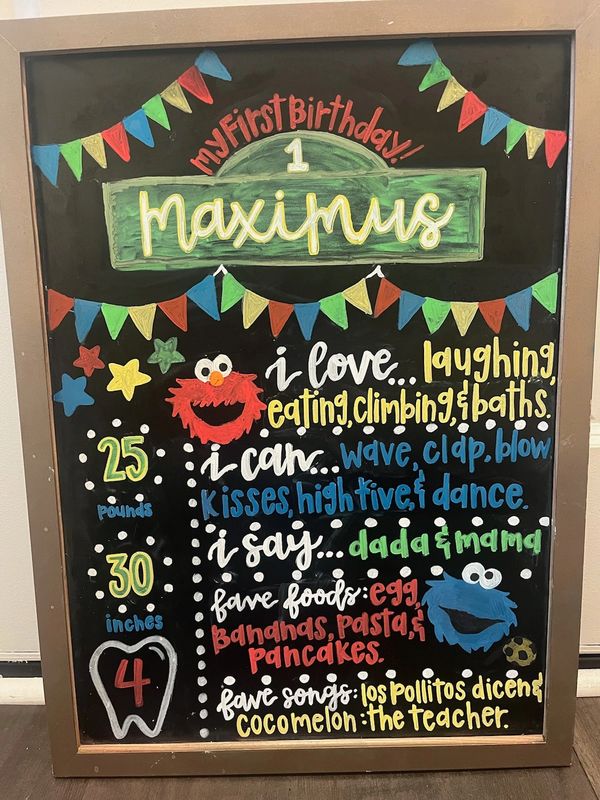 my First Birthday!
1
maximus
i love... laughing,
eating, climbing, & baths.
25
pounds
i can... wave, clap, blow
kisses, high five, & dance.
i say... dada & mama
30
inches
fave foods: egg,
Bananas, pasta, &
pancakes.
4
fave songs: los pollitos dicen &
cocomelon: the teacher.